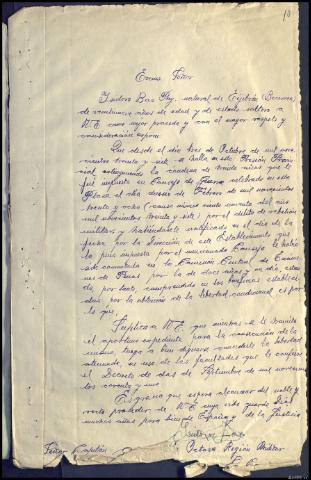 10
Excmo. Señor
Isidoro Bas natural de
de veintiun años de edad y de estado soltero a
V.E. como mejor proceda y con el mayor respeto y
consideración expone:
Que desde el día tres de Octubre de mil nove-
cientos treinta y siete se halla en esta Prisión Provin-
cial extinguiendo la condena de treinta años que le
fué impuesta en Consejo de Guerra celebrado en esta
Plaza el día de Febrero de mil novecientos
treinta y ocho
mil novecientos treinta y siete) por el delito de rebelión
militar, y habiéndosele notificado en el día de la
fecha por la Dirección de este Establecimiento que
la pena impuesta por el mencionado Consejo le había
sido conmutada en la Comisión Central de Examen
de Penas por la de doce años y un día, estan-
do, por tanto, comprendido en los
para la obtención de la libertad condicional es por
lo que,
Suplica a V.E. que
el oportuno expediente para la consecución de la
misma, luego a bien dignarse concederle la libertad
atenuada, en uso de las facultades que le confiere
el Decreto de de Septiembre de mil novecien-
tos cuarenta y uno.
Es gracia que espera alcanzar del noble y
recto proceder de V.E. cuya vida guarde Dios
muchos años para bien de España y de la Justicia
Isidoro Bas
Señor Capitán Octava Región Militar